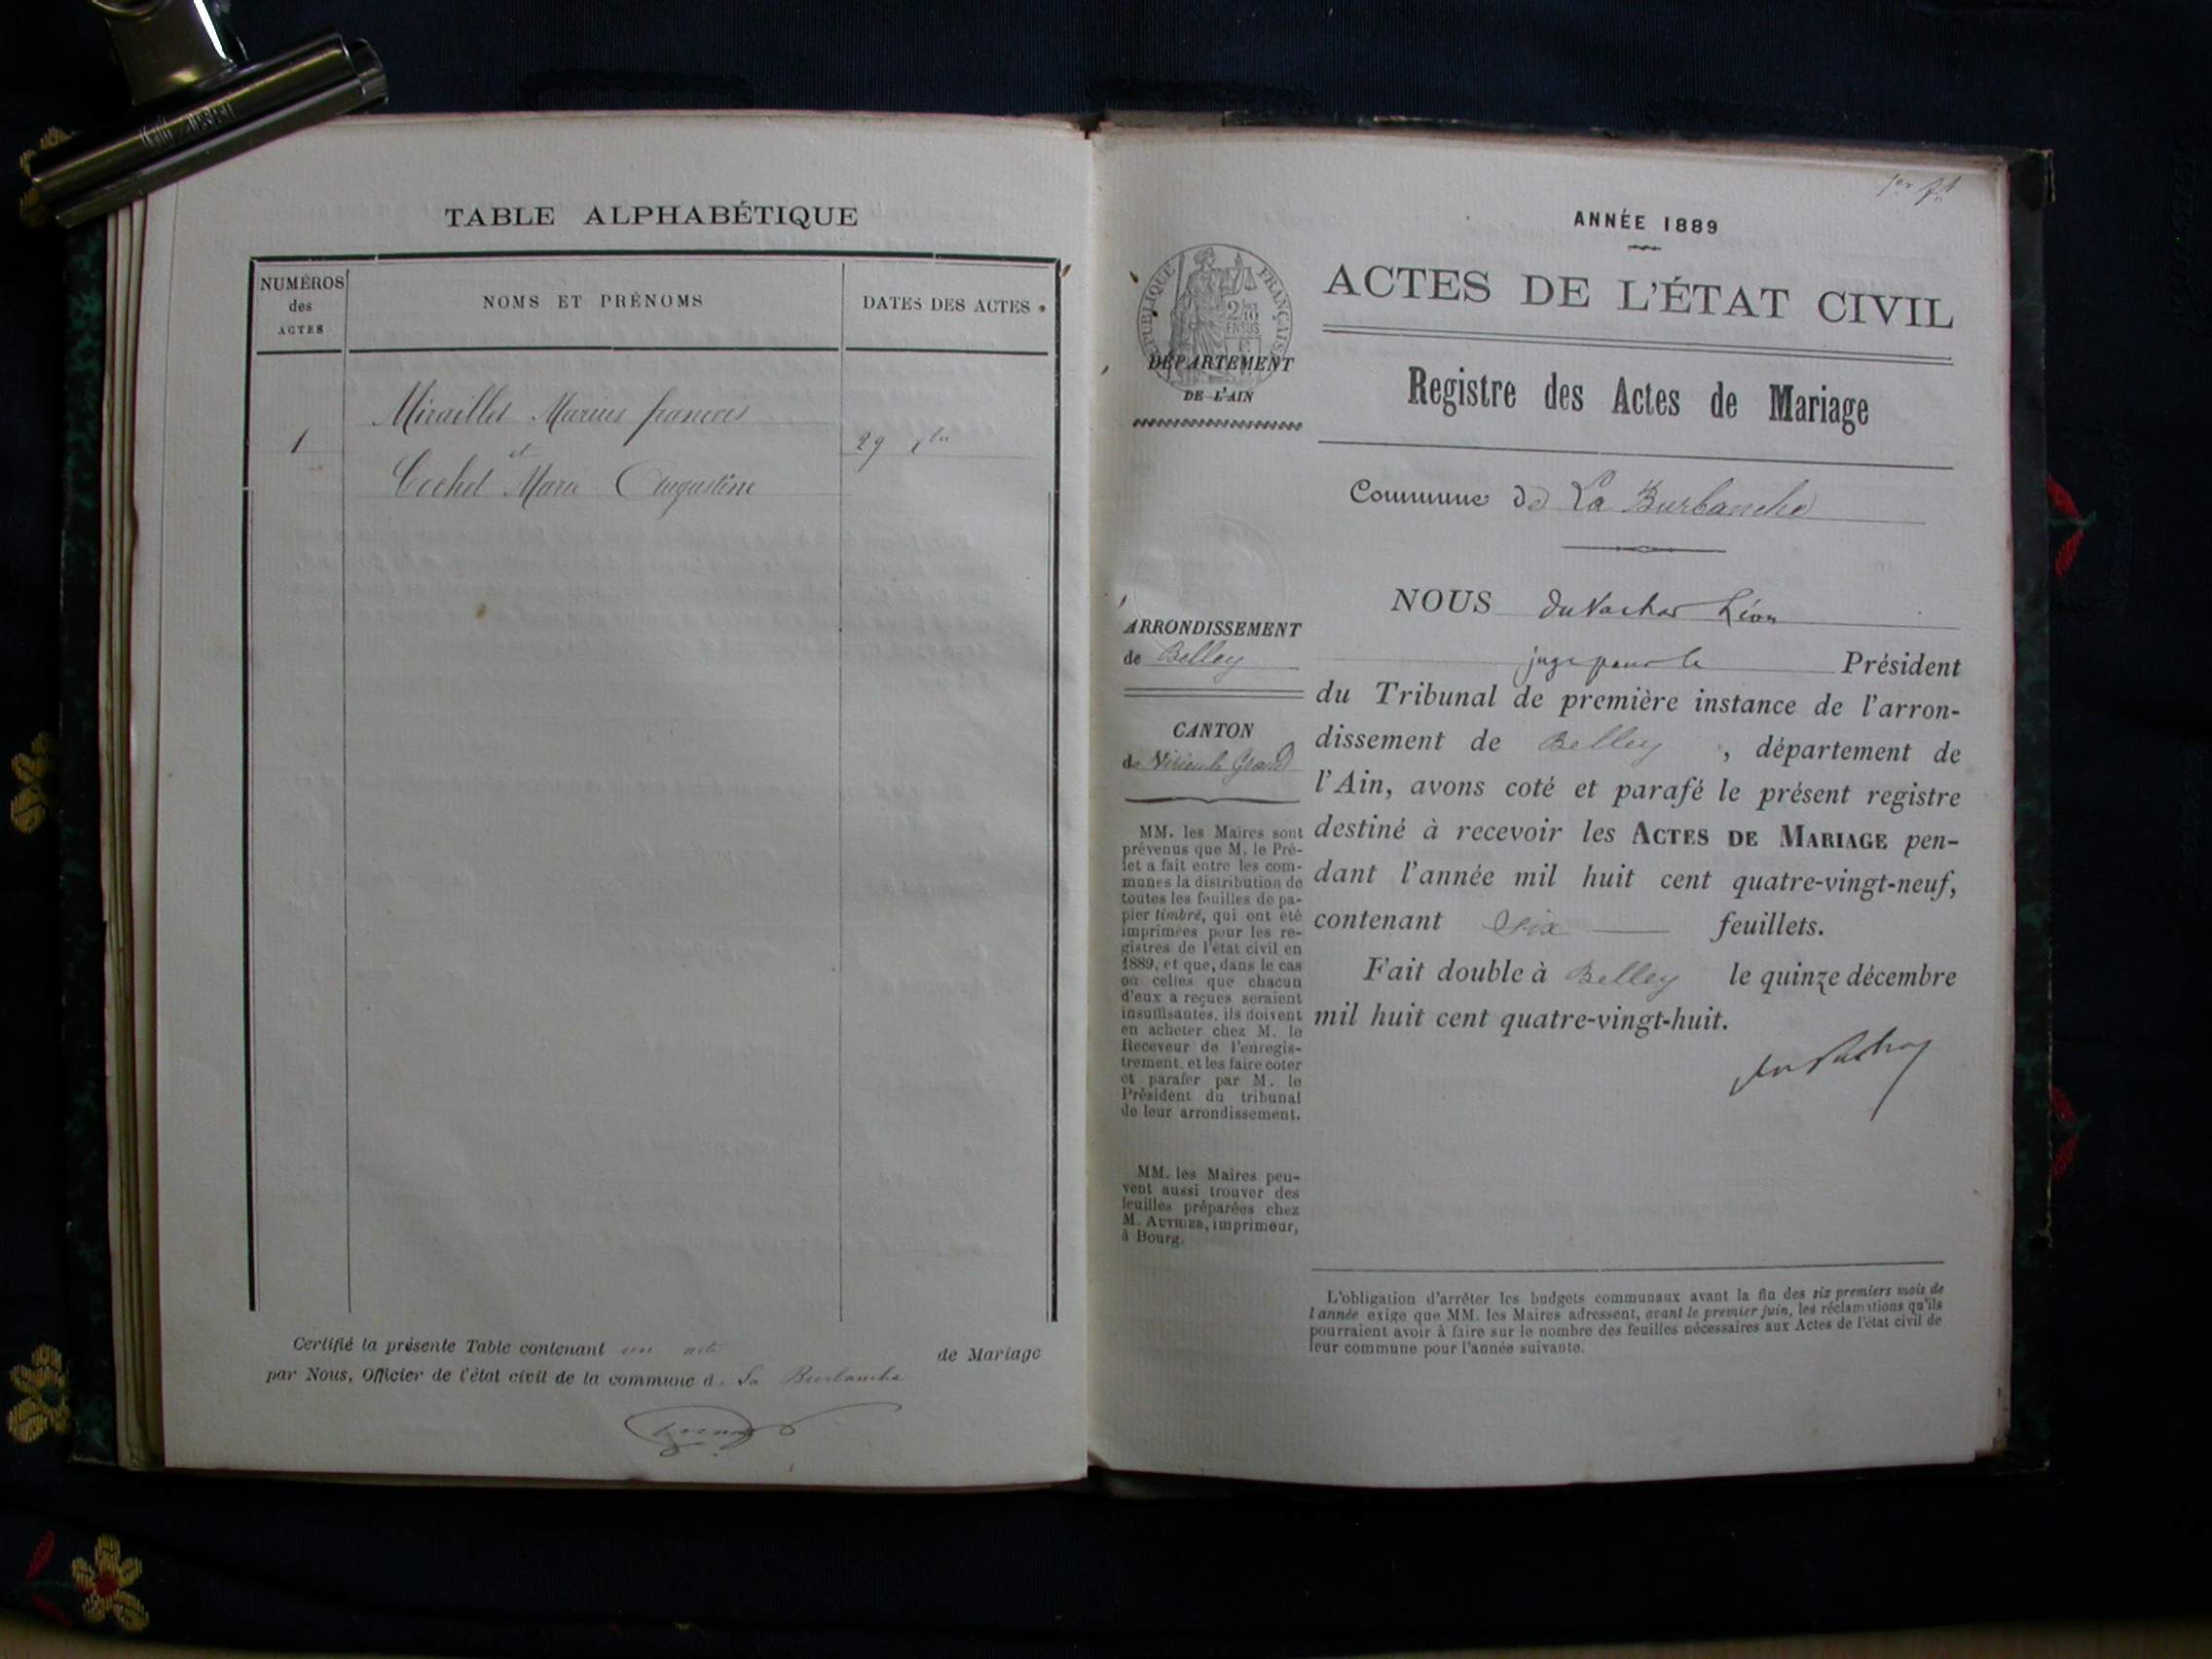 TABLE ALPHABÉTIQUE
NUMÉROS
des
ACTES
NOMS ET PRÉNOMS
DATES DES ACTES
Miraillet Marius francois
1
et
29
Cochet Marie Augustine
Certifié la présente Table contenant un acte de Mariage
par Nous, Officier de l'état civil de la commune de La Burbanche
1er
ANNÉE 1889
RÉPUBLIQUE FRANÇAISE
ACTES DE L'ÉTAT CIVIL
DÉPARTEMENT
DE L'AIN
Registre des Actes de Mariage
Commune de La Burbanche
ARRONDISSEMENT
de Belley
CANTON
de Virieu le Grand
MM. les Maires sont
prévenus que M. le Pré-
fet a fait entre les com-
munes la distribution de
toutes les feuilles de pa-
pier timbré, qui ont été
imprimées pour les re-
gistres de l'état civil en
1889, et que, dans le cas
où celles que chacun
d'eux a reçues seraient
insuffisantes, ils doivent
en acheter chez M. le
Receveur de l'enregis-
trement, et les faire coter
et parafer par M. le
Président du tribunal
de leur arrondissement.
MM. les Maires peu-
vent aussi trouver des
feuilles préparées chez
M. AUTHIER, imprimeur,
à Bourg.
NOUS Léon
juge pour le Président
du Tribunal de première instance de l'arron-
dissement de Belley, département de
l'Ain, avons coté et parafé le présent registre
destiné à recevoir les ACTES DE MARIAGE pen-
dant l'année mil huit cent quatre-vingt-neuf,
contenant six feuillets.
Fait double à Belley le quinze décembre
mil huit cent quatre-vingt-huit.
L'obligation d'arrêter les budgets communaux avant la fin des six premiers mois de
l'année exige que MM. les Maires adressent, avant le premier juin, les réclamations qu'ils
pourraient avoir à faire sur le nombre des feuilles nécessaires aux Actes de l'état civil de
leur commune pour l'année suivante.